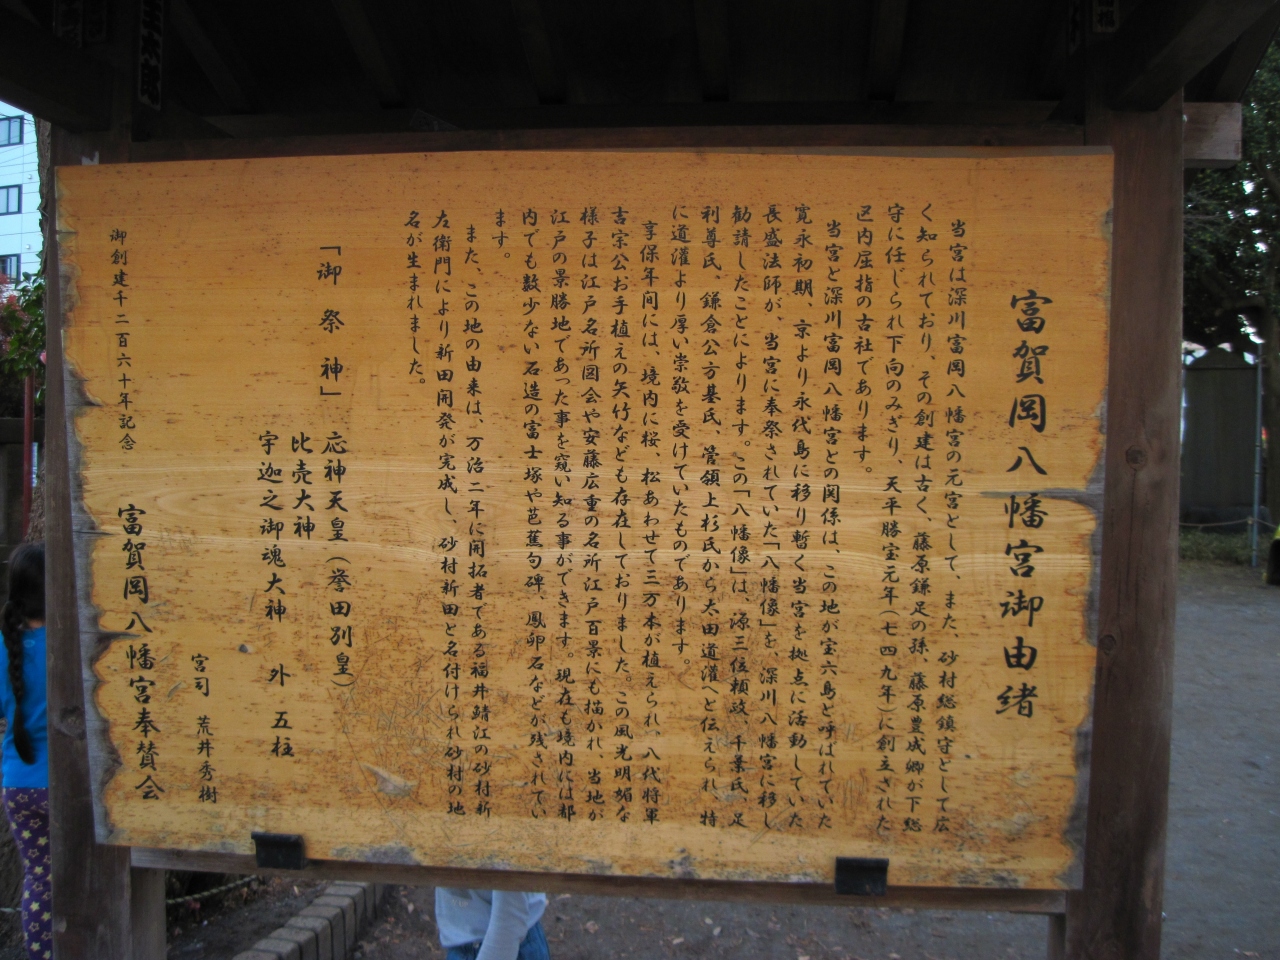 富賀岡八幡宮御由緒
当宮は深川富岡八幡宮の元宮として、また、砂村総鎮守として広
く知られており、その創建は古く、藤原鎌足の孫、藤原豊成卿が下総
守に任じられ下向のみぎり、天平勝宝元年(七四九年)に創立された
区内屈指の古社であります。
当宮と深川富岡八幡宮との関係は、この地が宝六島と呼ばれていた
寛永初期、京より永代島に移り暫く当宮を拠点に活動していた
長盛法師が、当宮に奉祭されていた「八幡像」を、深川八幡宮に移し
勧請したことによります。この「八幡像」は、源三位頼政、千葉氏、足
利尊氏、鎌倉公方基氏、管領上杉氏から太田道灌へと伝えられ、特
に道灌より厚い崇敬を受けていたものであります。
享保年间には、境内に桜、松あわせて三万本が植えられ、八代将軍
吉宗公お手植えの矢竹なども存在しておりました。この風光明媚な
様子は江戸名所図会や安藤広重の名所江戸百景にも描かれ、当地が
江戸の景勝地であった事を窺い知る事ができます。現在も境内には都
内でも数少ない石造の富士塚や芭蕉句碑、鳳卵石などが残されてい
ます。
また、この地の由来は、万治二年に開拓者である福井鯖江の砂村新
左衛門により新田開発が完成し、砂村新田と名付けられ砂村の地
名が生まれました。
「御祭神」 応神天皇(誉田別皇)
比売大神
宇迦之御魂大神 外 五柱
宮司 荒井秀樹
富賀岡八幡宮奉賛会
御創建千二百六十年記念